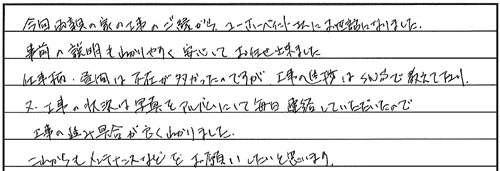 今回両親の家の工事のご縁から、ユーホーペイントさんにお世話になりました。
事前の説明もわかりやすく安心してお任せ出来ました
仕事柄・昼間は不在が多かったのですが、工事の進捗はSNSで教えて下さり
又、工事の状況は写真をアルバムにして毎日連絡していただいたので
工事の進み具合が良くわかりました。
これからもメンテナンスなどをお願いしたいと思います。